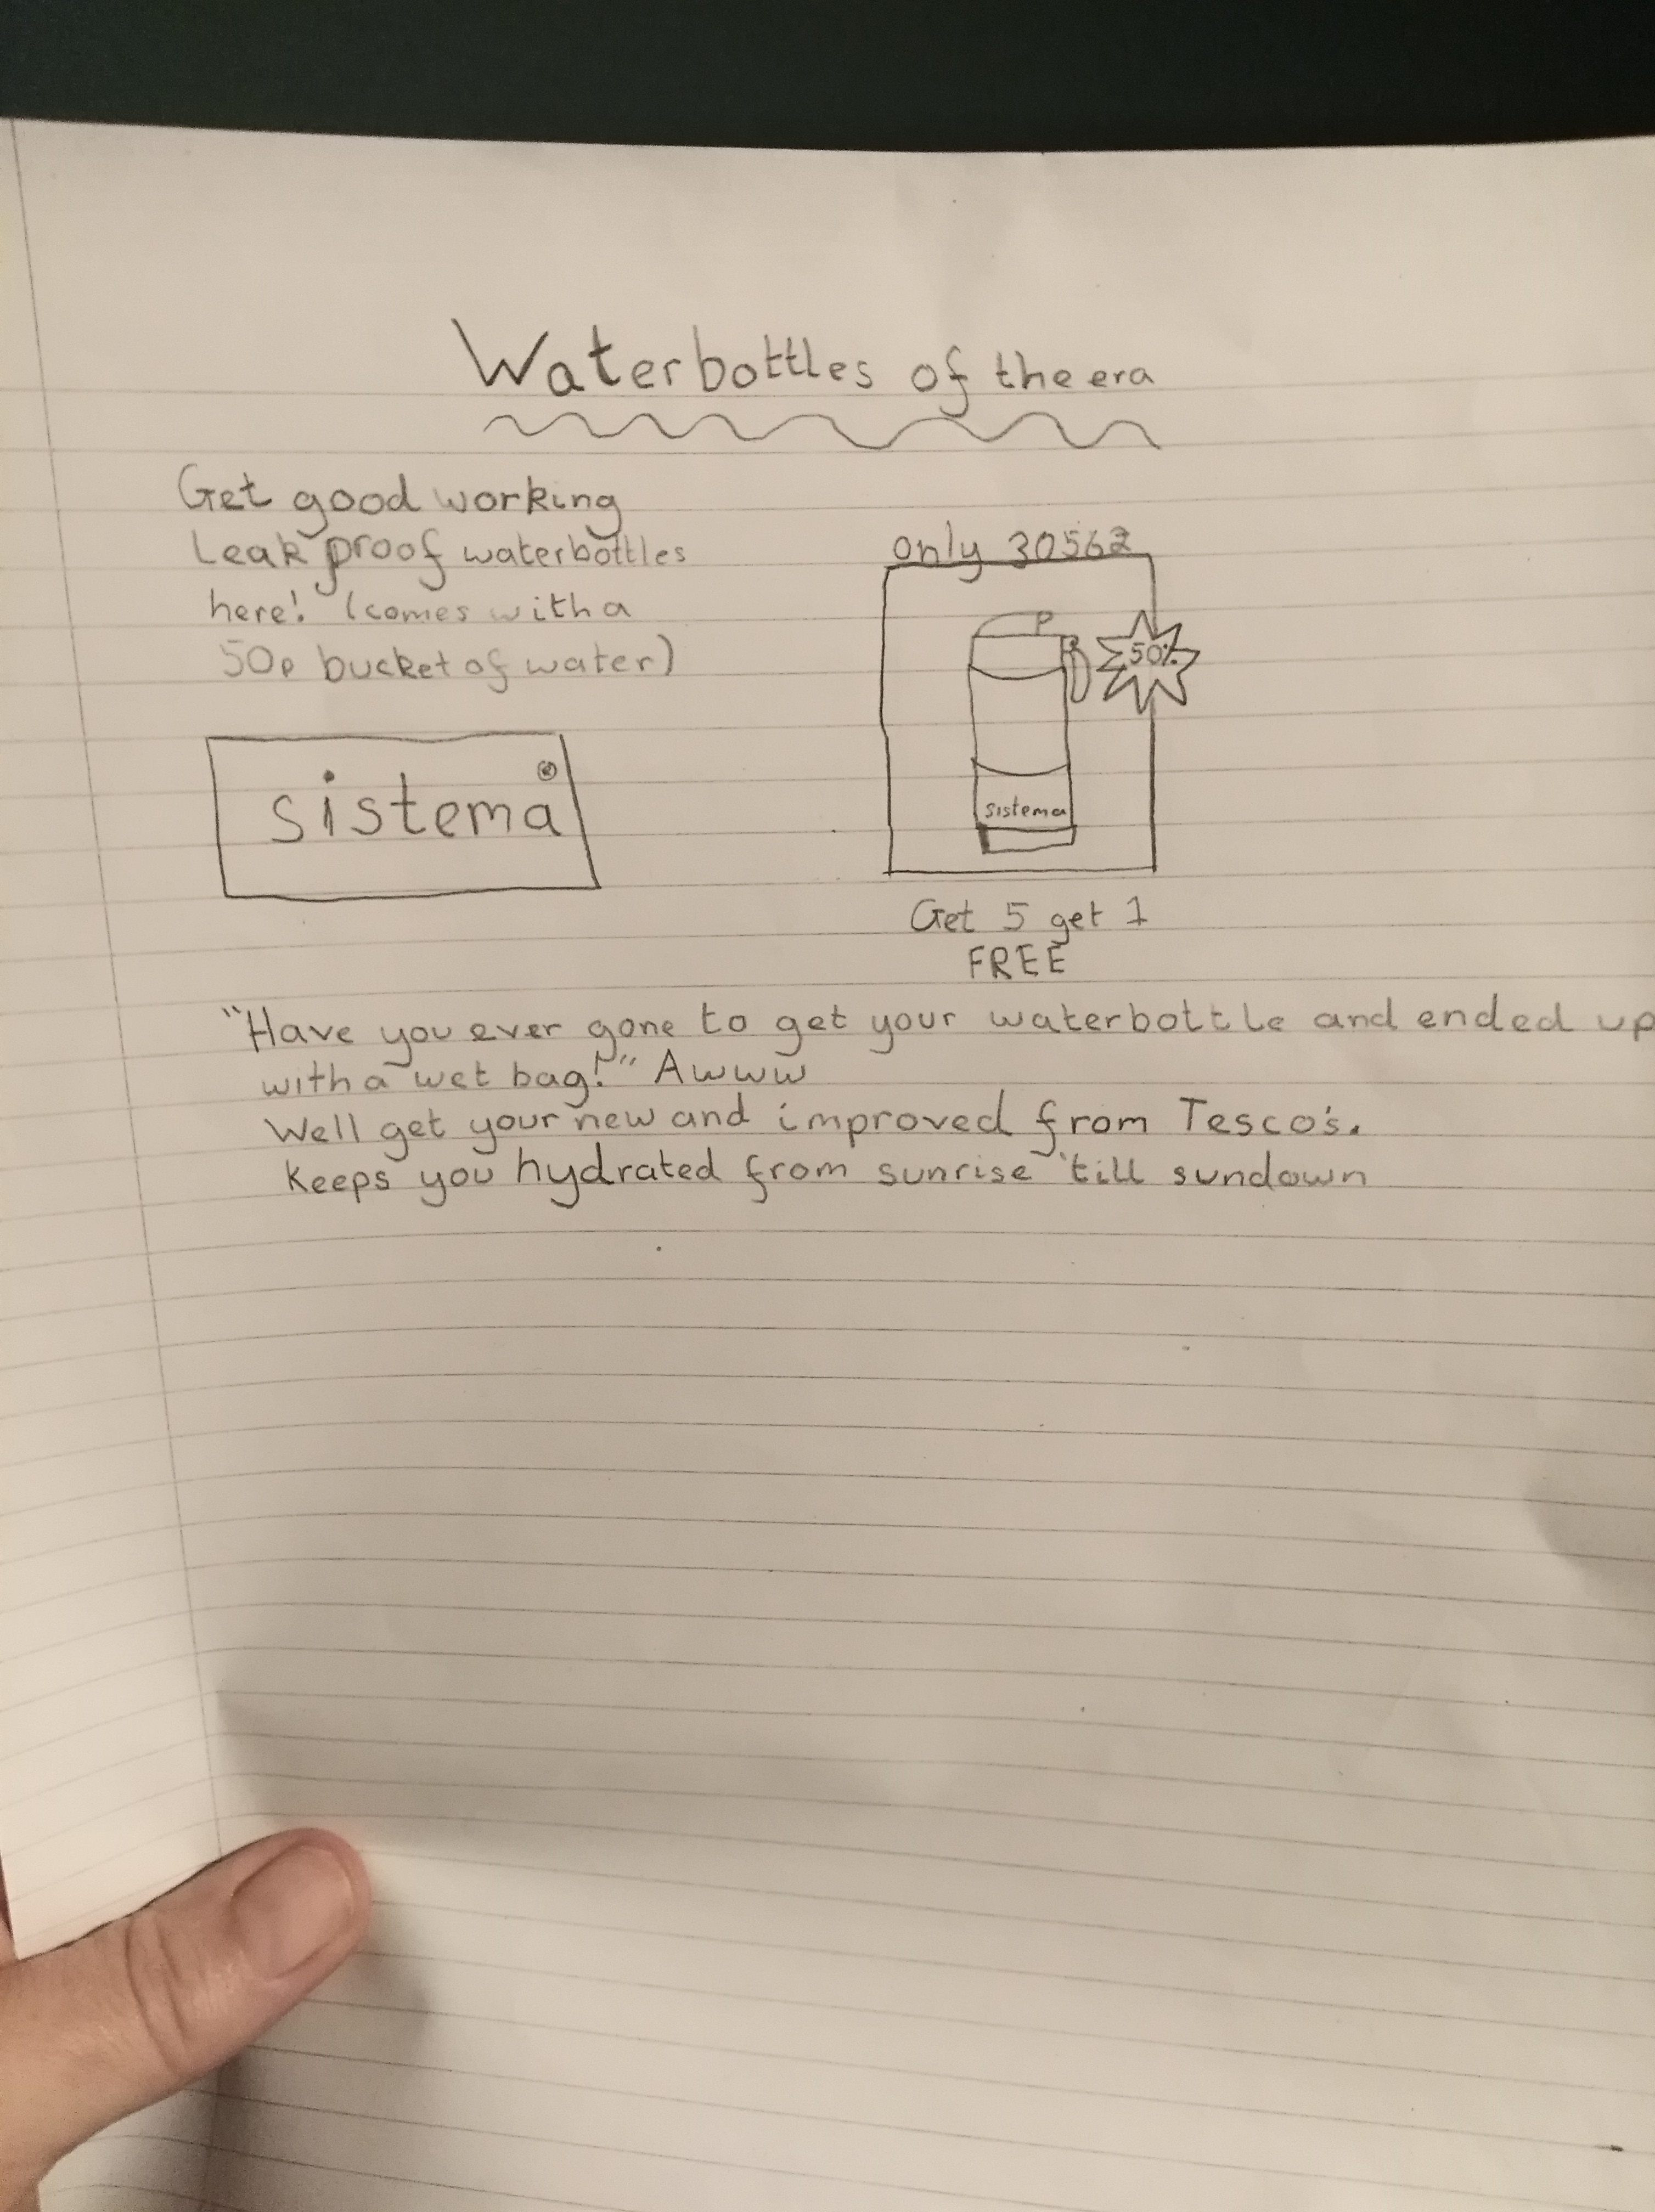 Waterbottles of the era
Get good working
Leak proof waterbottles
here! (comes with a
50p bucket of water)
sistema®
only 30562
50%
sistema
Get 5 get 1
FREE
"Have you ever gone to get your waterbottle and ended up
with a wet bag!" Awww
Well get your new and improved from Tesco's.
Keeps you hydrated from sunrise 'till sundown